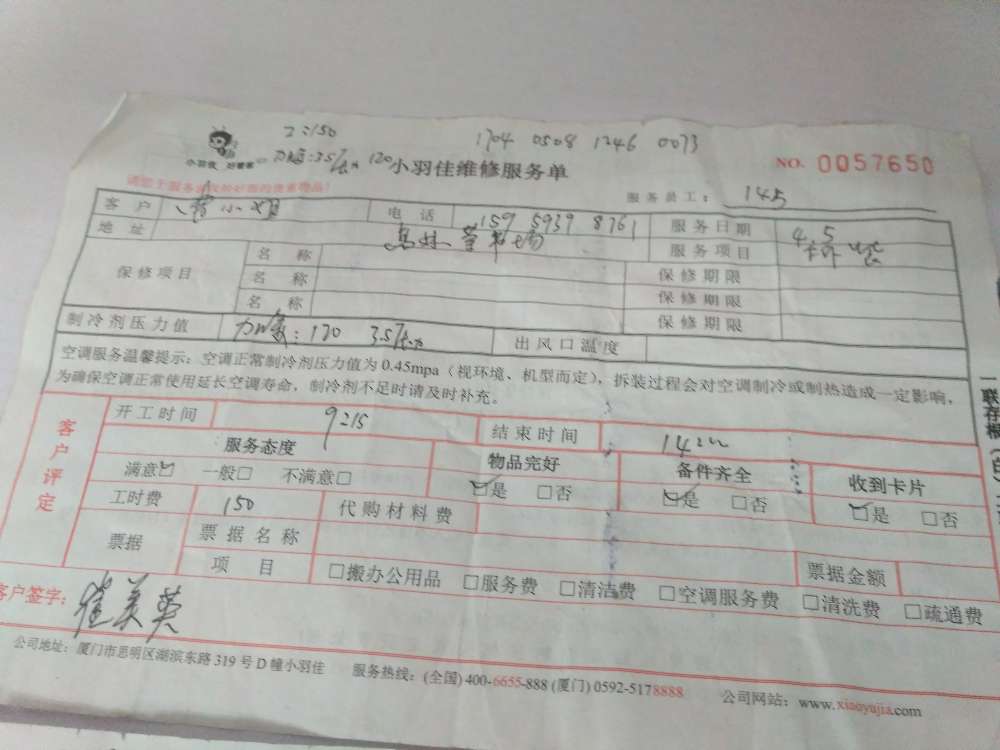 2:150
1704 0508 1246 0073
小羽佳 好管家
120
小羽佳维修服务单
NO. 0057650
服务员工: 145
客户 小姐 电话 159 5939 8761 服务日期 4 5
地址 服务项目
保修项目 名称 保修期限
名称 保修期限
名称 保修期限
制冷剂压力值 加氟: 120 35/ 出风口温度
空调服务温馨提示:空调正常制冷剂压力值为0.45mpa(视环境、机型而定),拆装过程会对空调制冷或制热造成一定影响,
为确保空调正常使用延长空调寿命,制冷剂不足时请及时补充。
客户评定
开工时间 9:15 结束时间
服务态度 物品完好 备件齐全 收到卡片
满意☑ 一般□ 不满意□ ☑是 □否 ☑是 □否 ☑是 □否
工时费 150 代购材料费
票据 票据名称
项目 □搬办公用品 □服务费 □清洁费 □空调服务费 □清洗费 □疏通费
票据金额
客户签字: 美英
公司地址:厦门市思明区湖滨东路319号D幢小羽佳 服务热线:(全国)400-6655-888 (厦门)0592-5178888 公司网站:www.xiaoyujia.com
一联存根